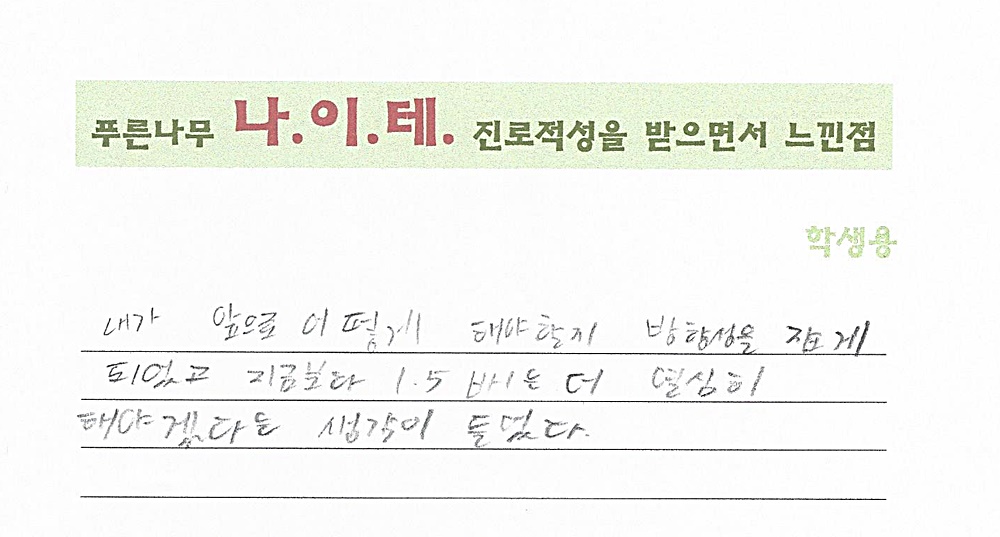 푸른나무 나.이.테. 진로적성을 받으면서 느낀점
학생용
내가 앞으로 어떻게 해야할지 방향성을 잡게
되었고 지금보다 1.5배는 더 열심히
해야겠다는 생각이 들었다.